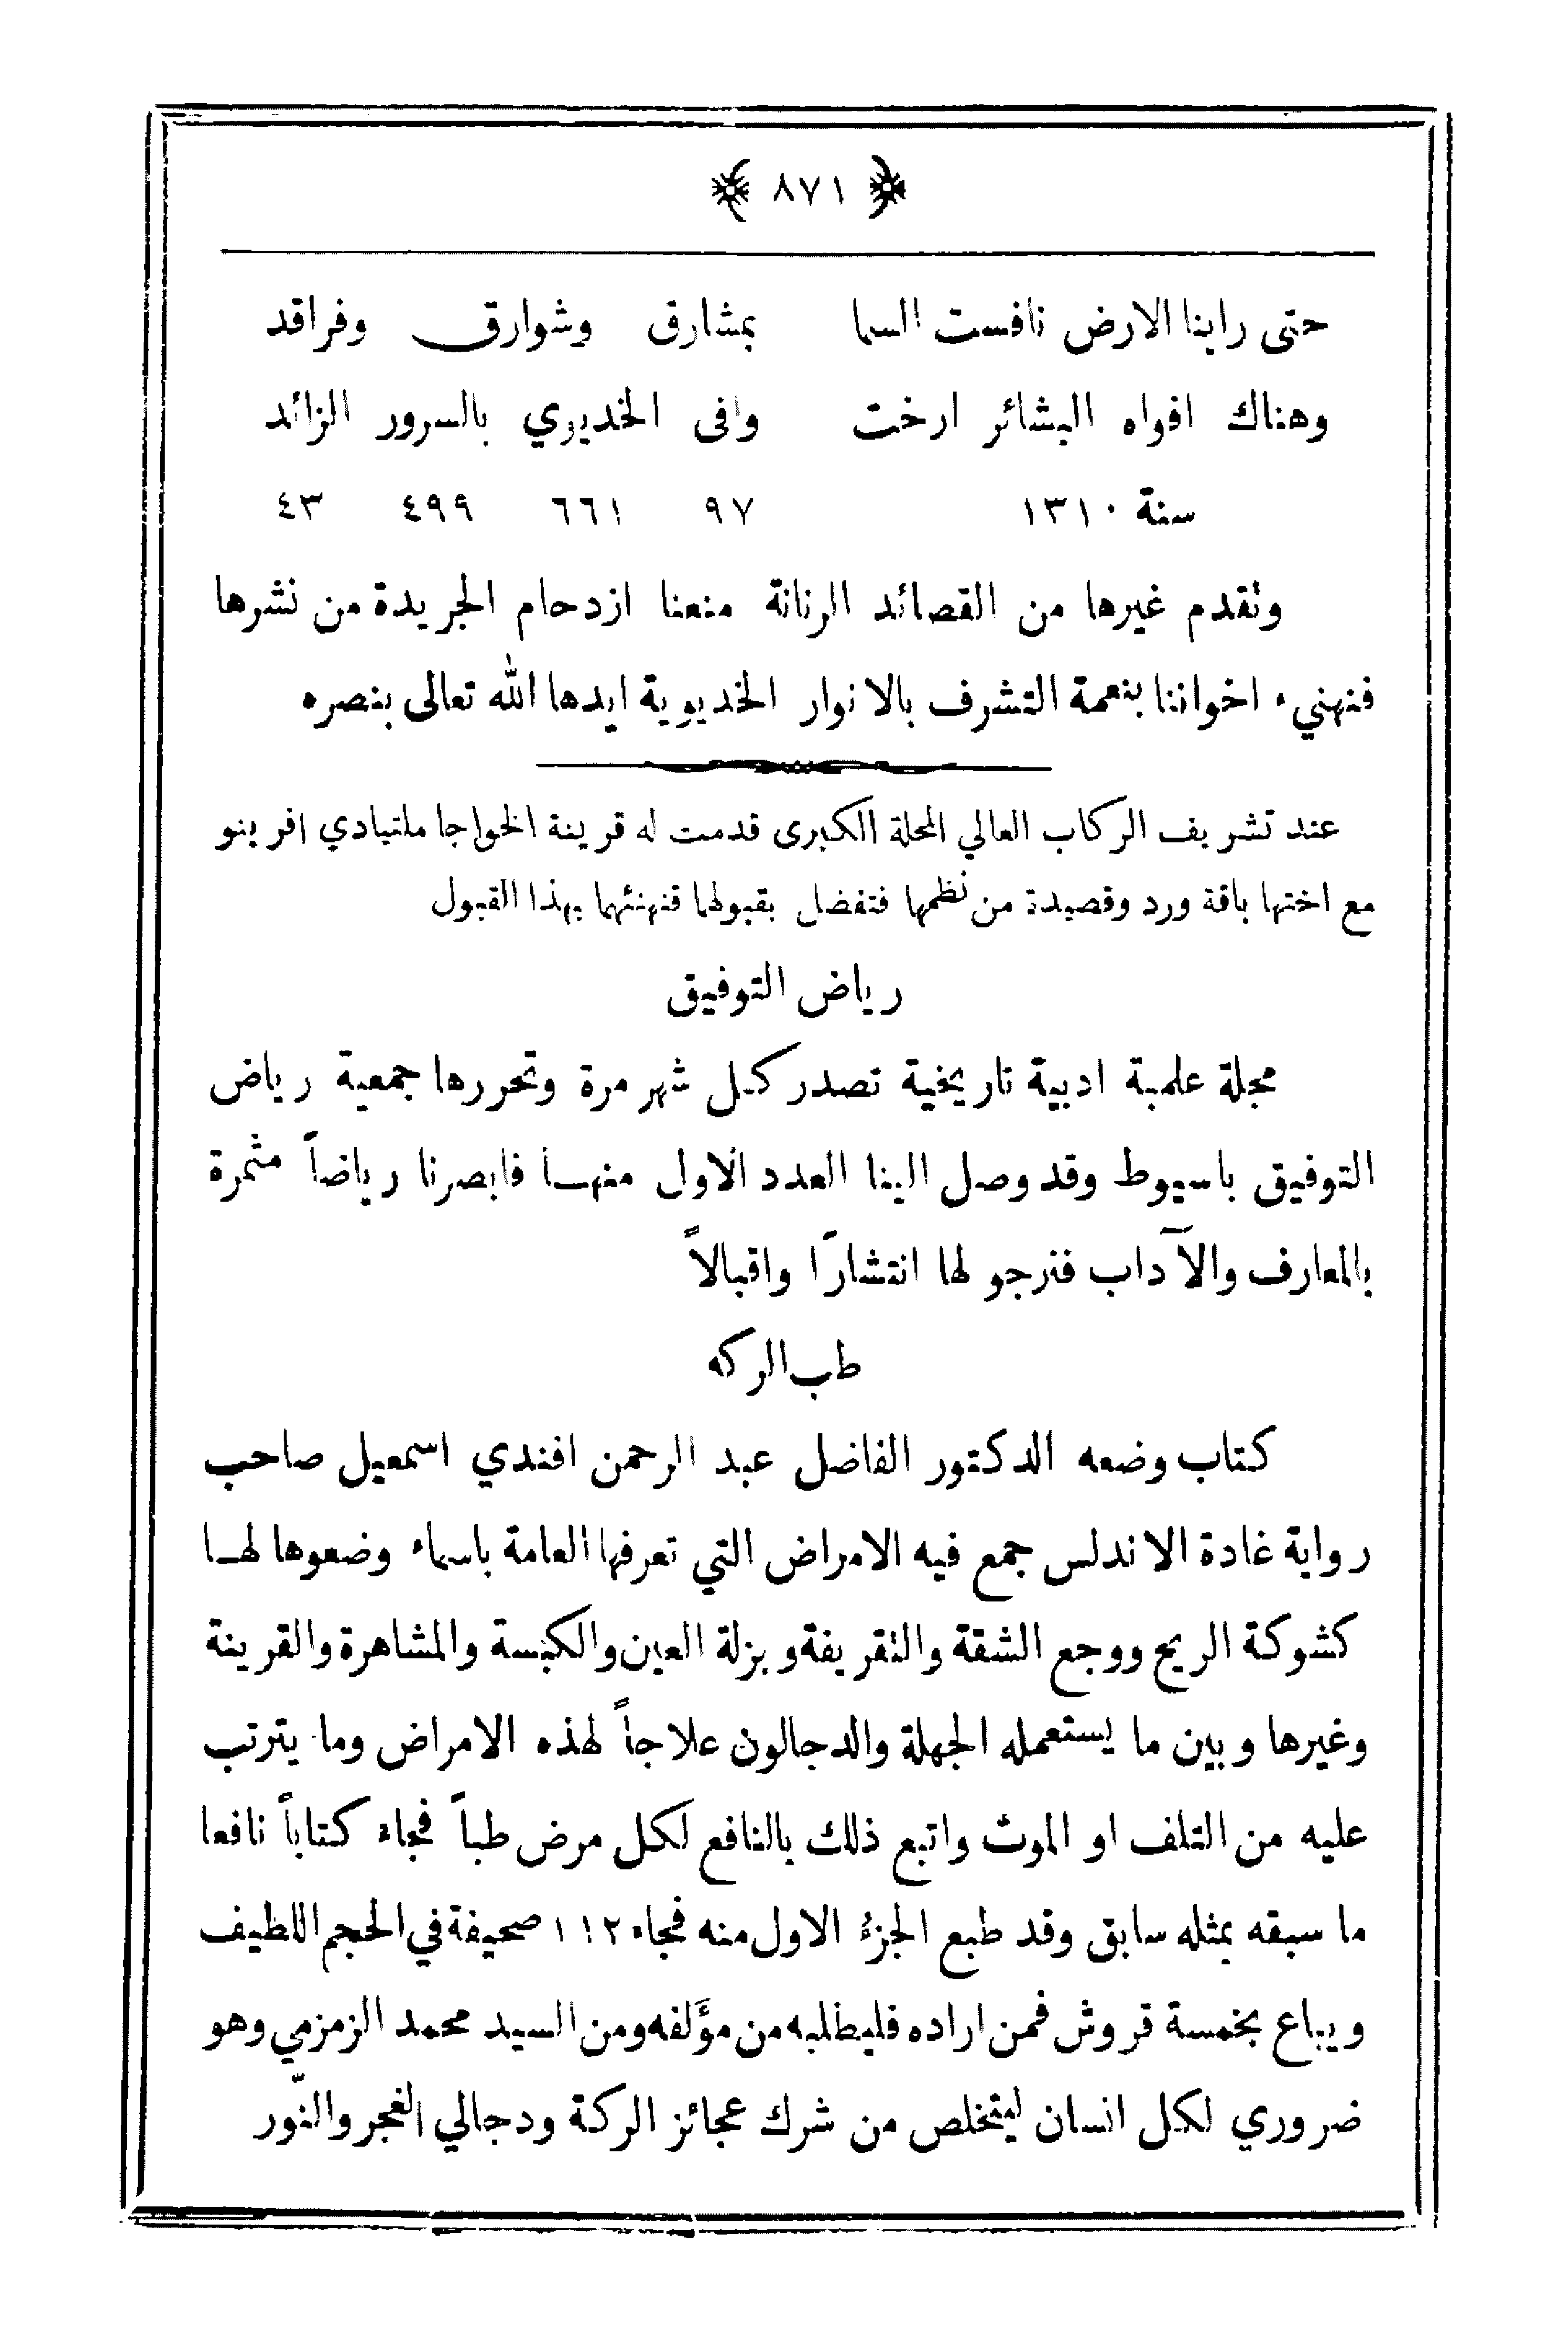 ﴿ ٨٧١ ﴾
حتى راينا الارض نافست السما بمشارق وشوارق وفراقد
وهناك افواه البشائر ارخت وافى الخديوي بالسرور الزائد
سنة ١٣١٠ ٩٧ ٦٦١ ٤٩٩ ٤٣
وتقدم غيرها من القصائد الرنانة منعنا ازدحام الجريدة من نشرها
فنهنيء اخواننا بنعمة التشرف بالانوار الخديوية ايدها الله تعالى بنصره
عند تشريف الركاب العالي المحلة الكبرى قدمت له قرينة الخواجا ملتيادي افرينو
مع اختها باقة ورد وقصيدة من نظمها فتفضل بقبولها فنهنئهما بهذا القبول
رياض التوفيق
مجلة علمية ادبية تاريخية تصدر كل شهر مرة وتحررها جمعية رياض
التوفيق باسيوط وقد وصل الينا العدد الاول منها فابصرنا رياضاً مثمرة
بالمعارف والآداب فنرجو لها انتشارًا واقبالاً
طب الركه
كتاب وضعه الدكتور الفاضل عبد الرحمن افندي اسمعيل صاحب
رواية غادة الاندلس جمع فيه الامراض التي تعرفها العامة باسماء وضعوها لها
كشوكة الريح ووجع الشقة والنقريفة وبزلة العين والكبسة والمشاهرة والقرينة
وغيرها وبين ما يستعمله الجهلة والدجالون علاجاً لهذه الامراض وما يترتب
عليه من التلف او الموت واتبع ذلك بالنافع لكل مرض طباً فجاء كتاباً نافعا
ما سبقه بمثله سابق وقد طبع الجزءُ الاول منه فجاء ١١٢ صحيفة في الحجم اللطيف
ويباع بخمسة قروش فمن اراده فليطلبه من مؤَلفه ومن السيد محمد الزمزمي وهو
ضروري لكل انسان ليتخلص من شرك عجائز الركة ودجالي الغجر والنّور